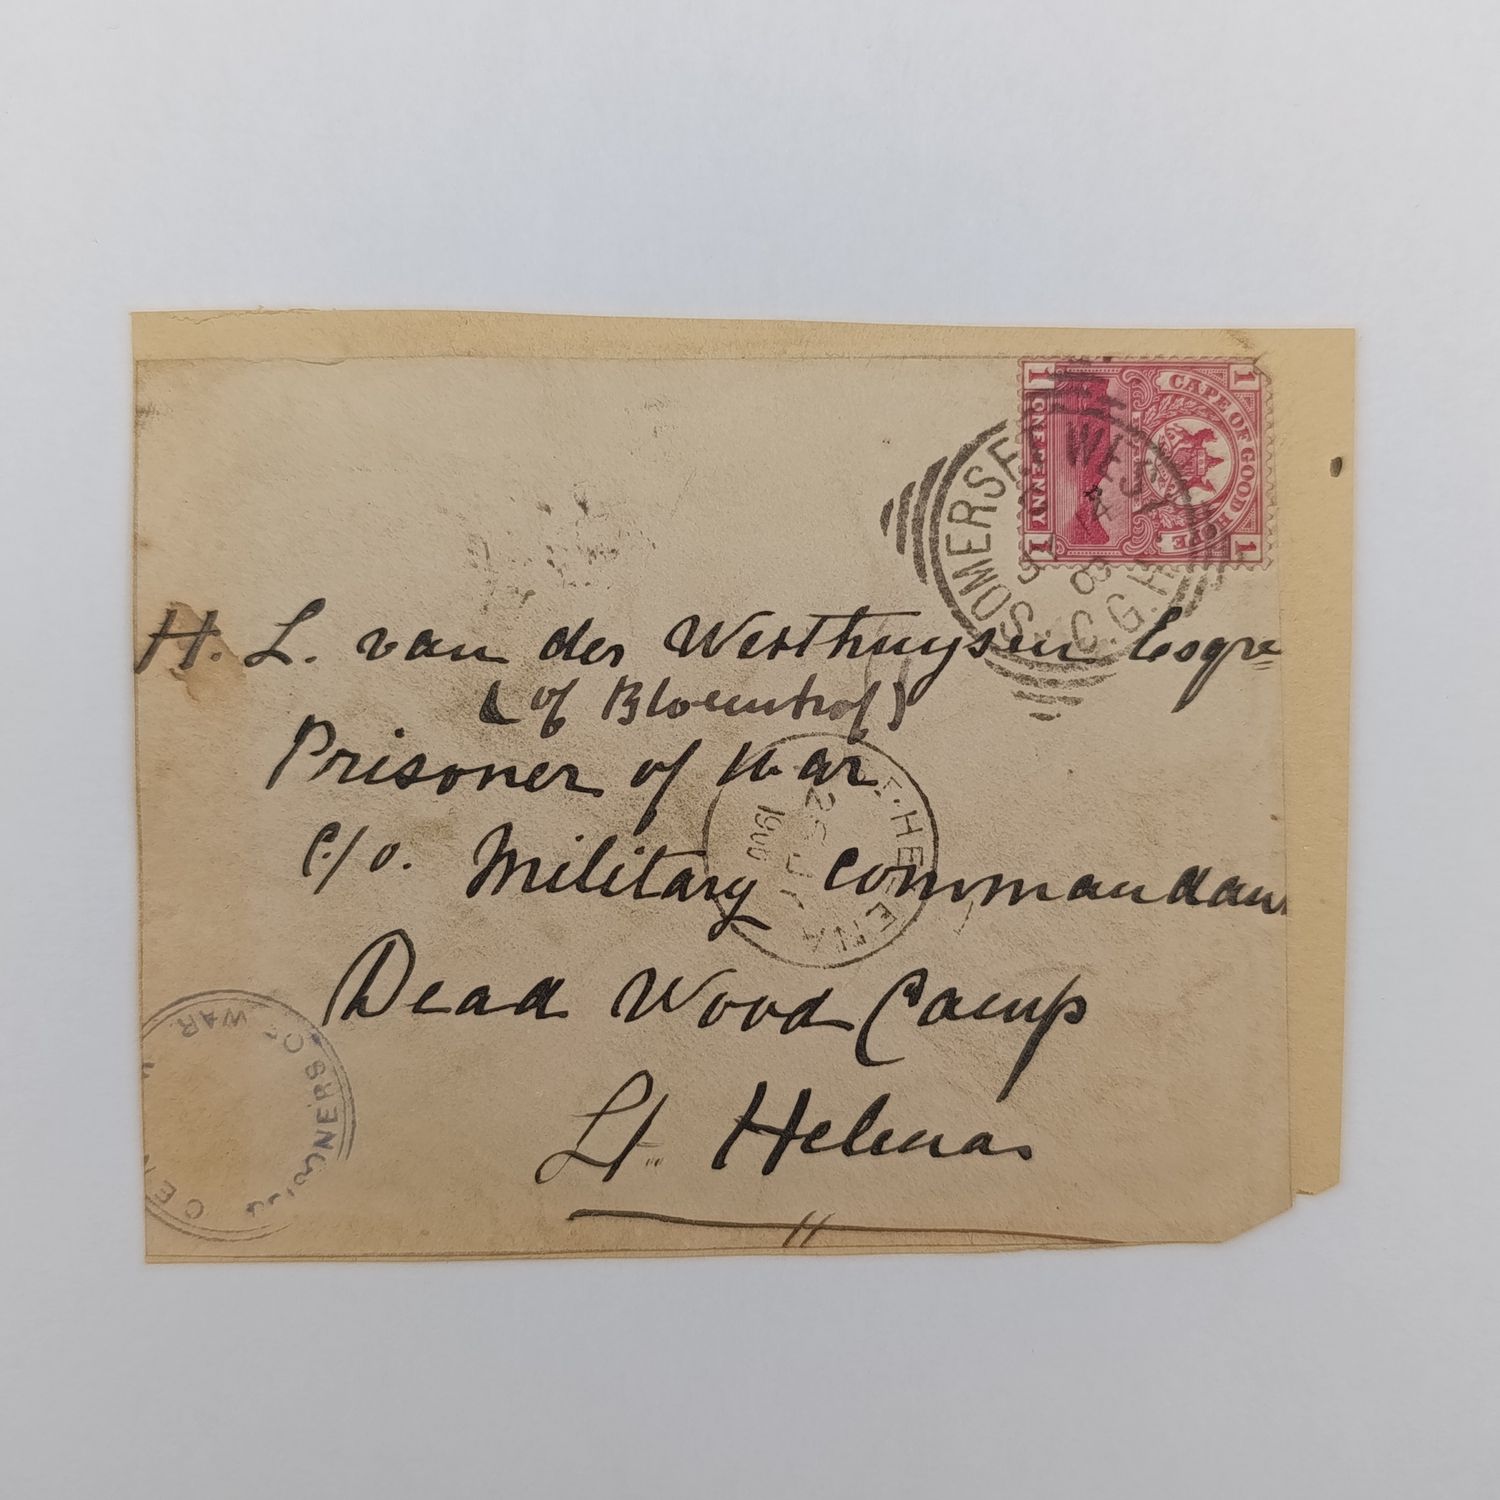 CAPE OF GOOD HOPE
1 ONE PENNY 1
1 1
SOMERSET WEST
C.G.H
H. L. van der Westhuysen Esqre
(of Bloemhof)
Prisoner of War
c/o. Military Commandan
Dead Wood Camp
St. Helena
ST. HELENA
1900
PRISONERS OF WAR